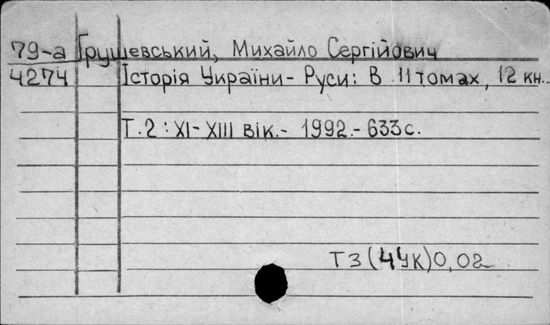 79-а Грушевський, Михайло Сергійович
4274 Історія України-Руси: В 11 томах, 12 кн..
Т.2: XI-XIII вік.- 1992.- 633с.
Т3(4УК)0,02